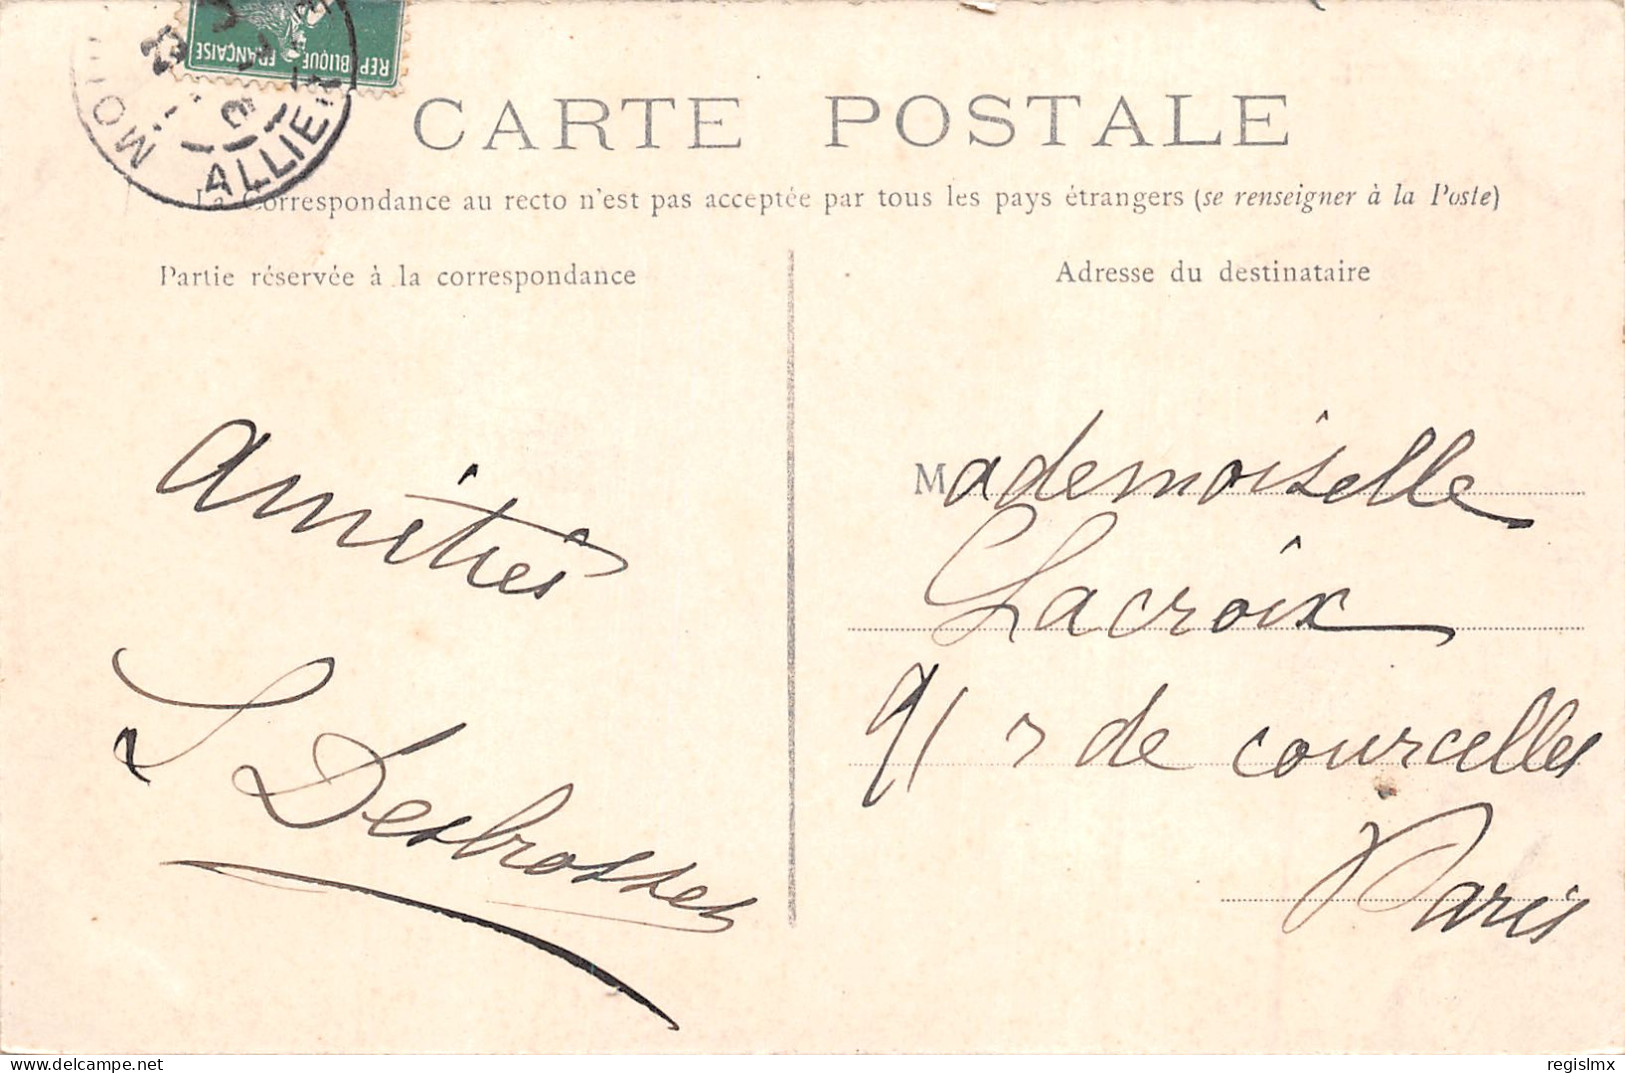 RÉPUBLIQUE FRANÇAISE
ALLIER
CARTE POSTALE
La Correspondance au recto n'est pas acceptée par tous les pays étrangers (se renseigner à la Poste)
Partie réservée à la correspondance
Amitiés
L Desbrosses
Adresse du destinataire
Mademoiselle
Lacroix
91 r de courcelles
Paris
delcampe.net
regislmx